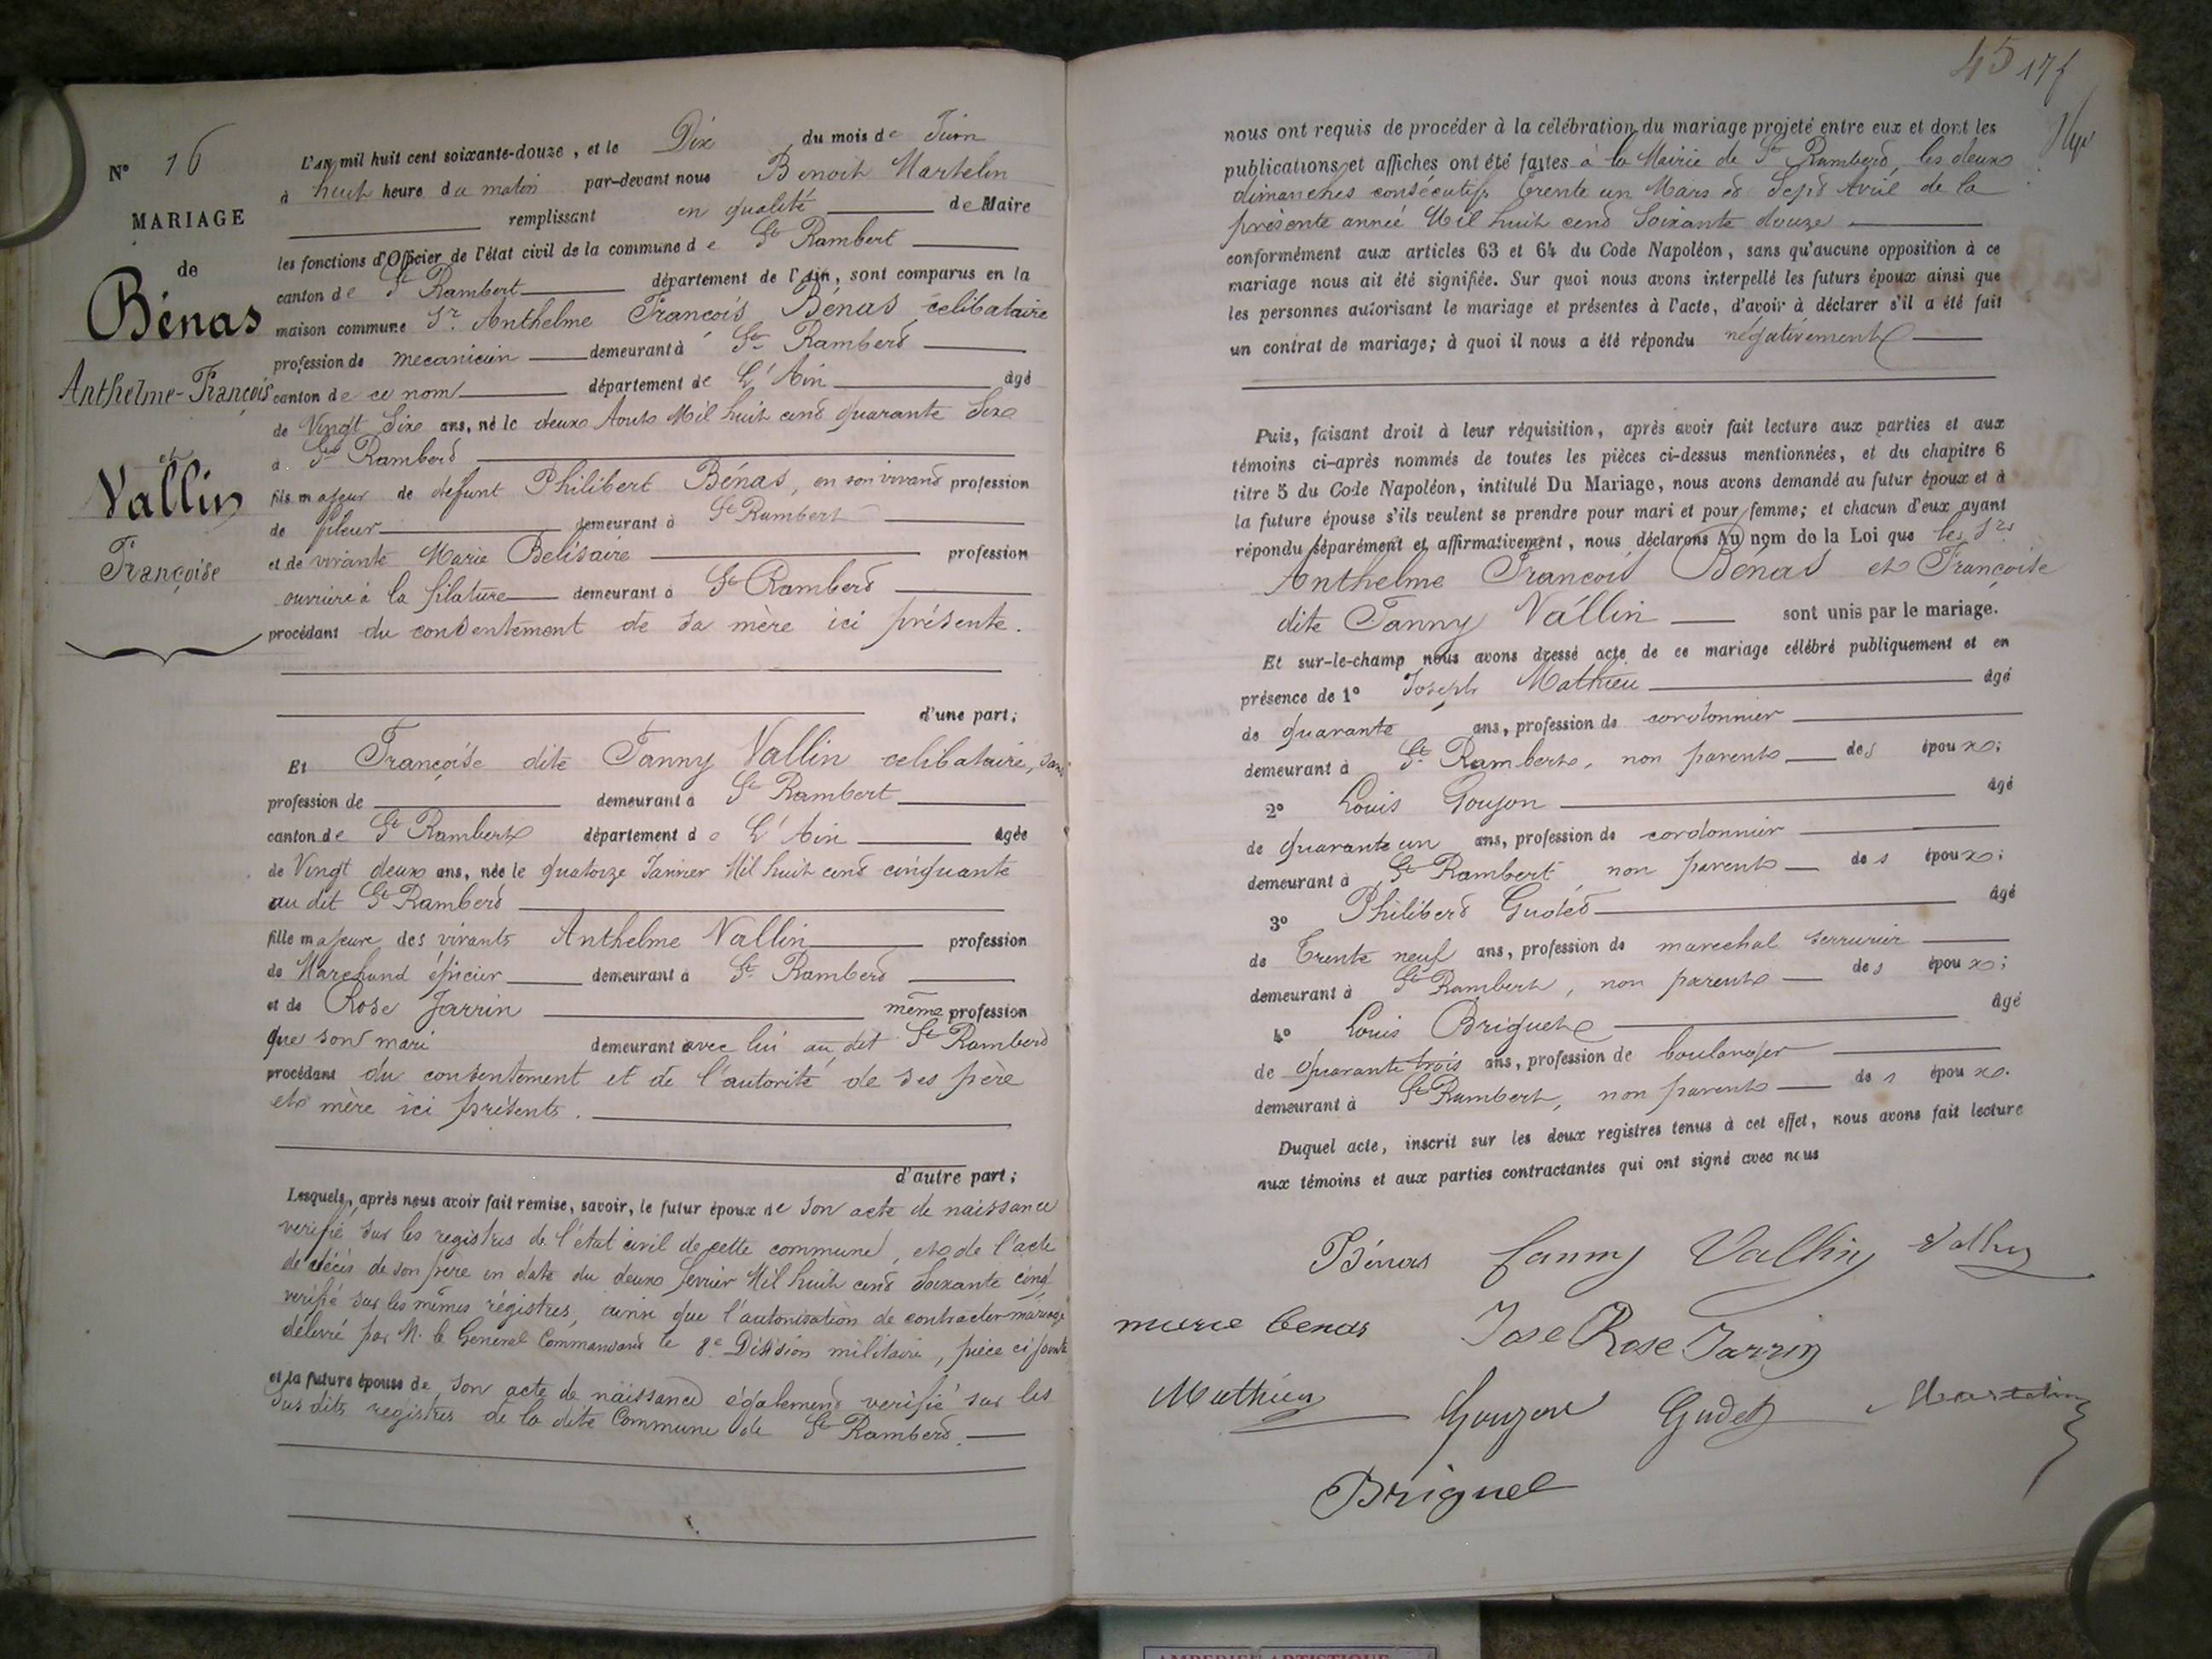 N° 16
MARIAGE
de
Bénas
Anthelme-François
et
Vallin
Françoise
L'AN mil huit cent soixante-douze, et le Dix du mois de Juin
à huit heure du matin par-devant nous Benoit Martelin
remplissant en qualité de Maire
les fonctions d'Officier de l'état civil de la commune de St Rambert
canton de St Rambert département de l'Ain, sont comparus en la
maison commune Sr Anthelme François Benas, célibataire
profession de mecanicien demeurant à St Rambert
canton de ce nom département de L'Ain âgé
de Vingt Six ans, né le deux Aout Mil huit cent quarante Six
à St Rambert
fils majeur de defunt Philibert Bénas, en son vivant profession
de fileur demeurant à St Rambert
et de vivante Marie Belisaire profession
ouvrière à la filature demeurant à St Rambert
procédant du consentement de sa mère ici présente.
d'une part;
Et Françoise dite Fanny Vallin celibataire, sans
profession de demeurant à St Rambert
canton de St Rambert département de L'Ain âgée
de Vingt deux ans, née le quatorze Janvier Mil huit cent cinquante
au dit St Rambert
fille majeure des vivants Anthelme Vallin profession
de Marchand épicier demeurant à St Rambert
et de Rose Jarrin même profession
que son mari demeurant avec lui au dit St Rambert
procédant du consentement et de l'autorité de ses père
et mère ici présents.
d'autre part;
Lesquels, après nous avoir fait remise, savoir, le futur époux de son acte de naissance
verifié sur les registres de l'état civil de cette commune, et de l'acte
de décès de son père en date du deux fevrier Mil huit cent Soixante cinq
verifié sur les mêmes régistres, ainsi que l'autorisation de contracter mariage
délivré par M. le General Commandant le 8e Division militaire, pièce ci jointe
et la future épouse de son acte de naissance également verifié sur les
sus dits registres de la dite Commune de St Rambert.
45 175
nous ont requis de procéder à la célébration du mariage projeté entre eux et dont les
publications et affiches ont été faites à la Mairie de St Rambert, les deux
dimanches consécutifs trente un Mars et Sept Avril de la
présente année Mil huit cent Soixante douze
conformément aux articles 63 et 64 du Code Napoléon, sans qu'aucune opposition à ce
mariage nous ait été signifiée. Sur quoi nous avons interpellé les futurs époux ainsi que
les personnes autorisant le mariage et présentes à l'acte, d'avoir à déclarer s'il a été fait
un contrat de mariage; à quoi il nous a été répondu négativement
Puis, faisant droit à leur réquisition, après avoir fait lecture aux parties et aux
témoins ci-après nommés de toutes les pièces ci-dessus mentionnées, et du chapitre 6
titre 5 du Code Napoléon, intitulé Du Mariage, nous avons demandé au futur époux et à
la future épouse s'ils veulent se prendre pour mari et pour femme; et chacun d'eux ayant
répondu séparément et affirmativement, nous déclarons Au nom de la Loi que les Srs
Anthelme François Bénas et Françoise
dite Fanny Vallin sont unis par le mariage.
Et sur-le-champ nous avons dressé acte de ce mariage célébré publiquement et en
présence de 1° Joseph Mathieu âgé
de quarante ans, profession de cordonnier
demeurant à St Rambert, non parent des époux;
2° Louis Goujon âgé
de quarante un ans, profession de cordonnier
demeurant à St Rambert non parent des époux;
3° Philibert Gudet âgé
de trente neuf ans, profession de marechal serrurier
demeurant à St Rambert, non parent des époux;
4° Louis Briguet âgé
de quarante trois ans, profession de boulanger
demeurant à St Rambert, non parent des époux.
Duquel acte, inscrit sur les deux registres tenus à cet effet, nous avons fait lecture
aux témoins et aux parties contractantes qui ont signé avec nous
Bénas fanny Vallin Vallin
marie benas Rose Jarrin
Mathieu Goujon Gudet Martelin
Briguet
AMBERIEU ARTISTIQUE